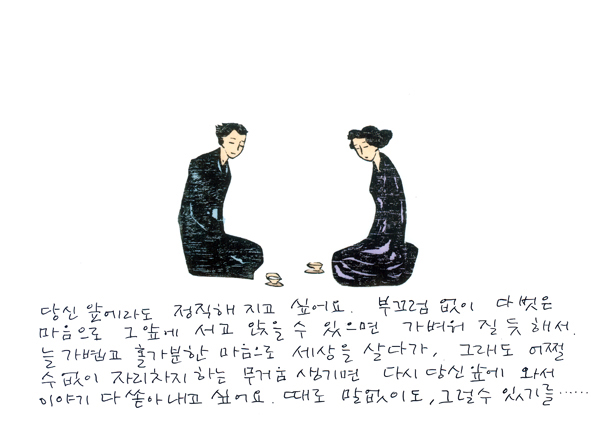 당신 앞에라도 정직해 지고 싶어요. 부끄럼 없이 다 벗은
마음으로 그 앞에 서고 앉을 수 있으면 가벼워 질 듯 해서.
늘 가볍고 홀가분한 마음으로 세상을 살다가, 그래도 어쩔
수 없이 자리차지 하는 무거움 생기면 다시 당신 앞에 와서
이야기 다 쏟아내고 싶어요. 때로 말없이도, 그럴 수 있기를……